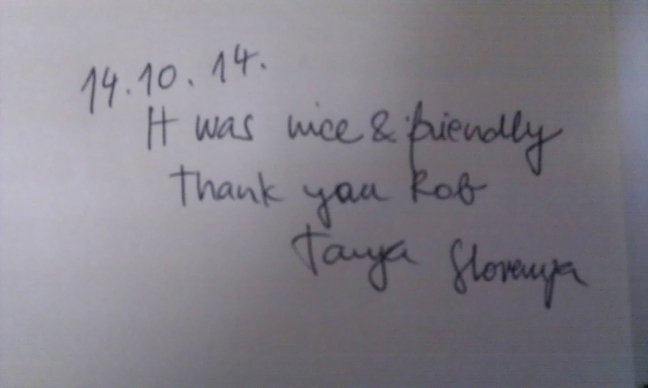 14.10.14.
It was nice & friendly
Thank you Rob
Tanya Slovenija